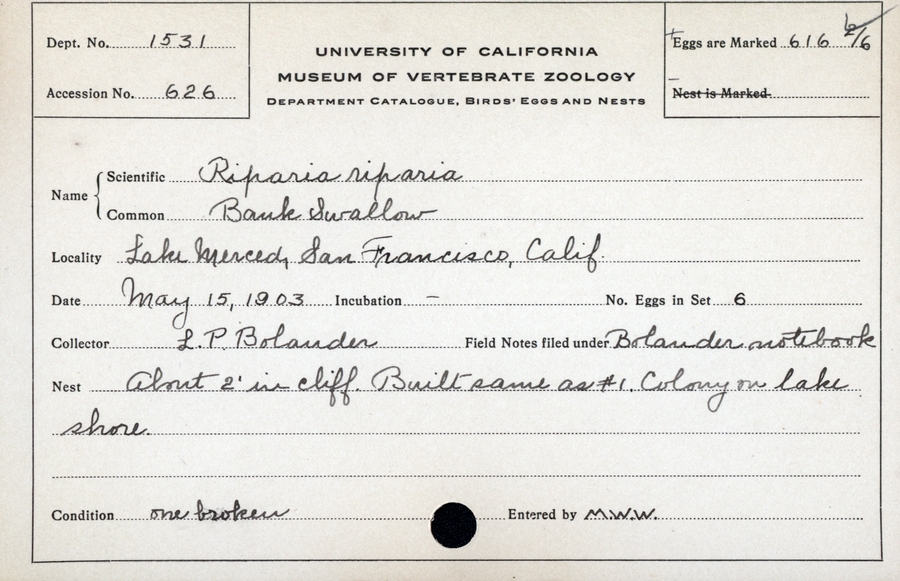 Dept. No. 1531
Accession No. 626
UNIVERSITY OF CALIFORNIA
MUSEUM OF VERTEBRATE ZOOLOGY
DEPARTMENT CATALOGUE, BIRDS' EGGS AND NESTS
Eggs are Marked 616 2/6
Nest is Marked
Name
Scientific Riparia riparia
Common Bank Swallow
Locality Lake Merced, San Francisco, Calif.
Date May 15, 1903 Incubation – No. Eggs in Set 6
Collector L.P. Bolander Field Notes filed under Bolander notebook
Nest About 2' in cliff. Built same as #1. Colony on lake
shore.
Condition one broken Entered by M.W.W.